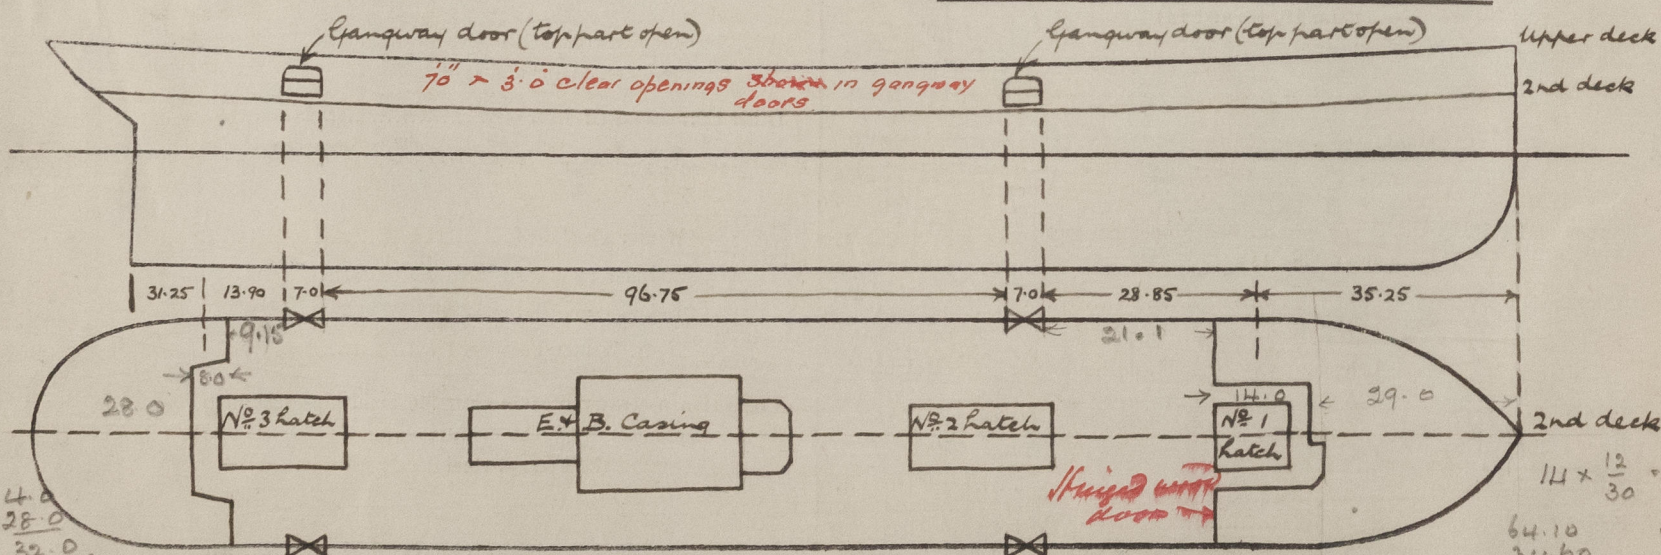 Gangway door (top part open)
Gangway door (top part open)
Upper deck
7'0" × 3'.0" clear openings shown in gangway
doors
2nd deck
31.25 13.90 7.0 96.75 7.0 28.85 35.25
9.15
21.1
8.0
28.0
14.0
29.0
Nº 3 hatch
E. & B. Casing
Nº 2 hatch
Nº 1
hatch
2nd deck
Hinged
door
14 × 12/30
4.0
28.0
32.0
64.10